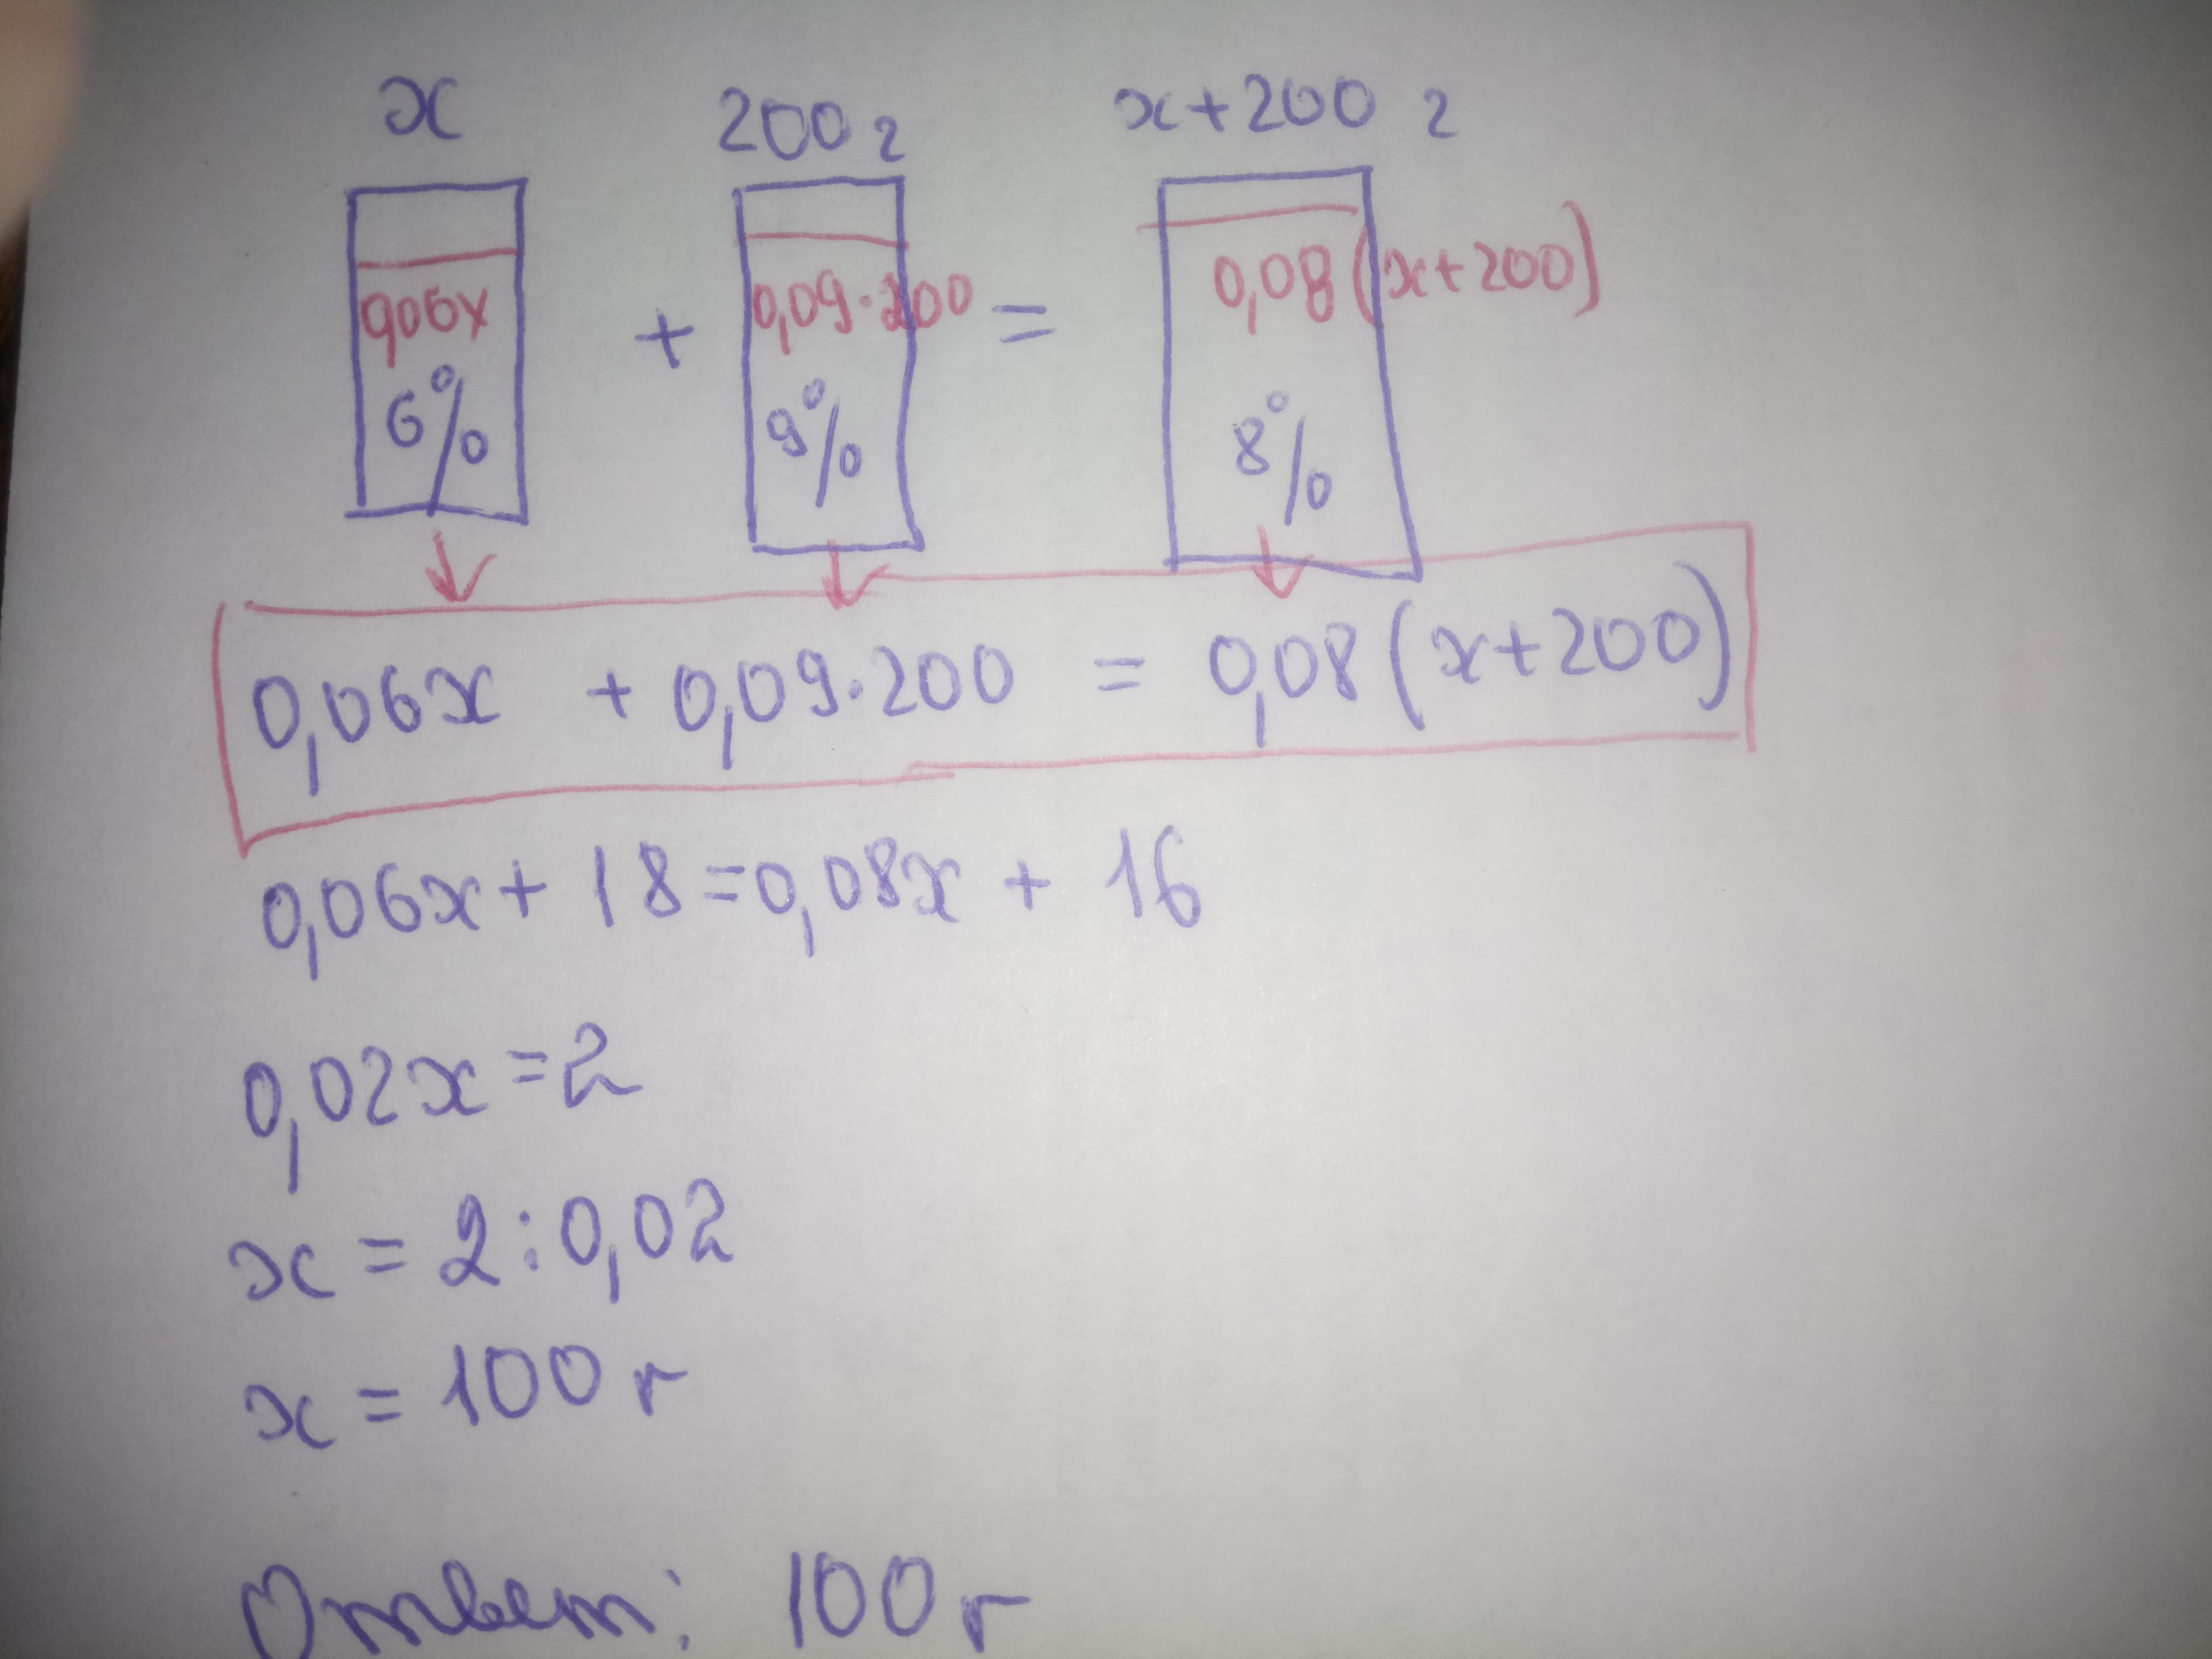 x 200 г x+200 г
0,06x + 0,09·200 = 0,08(x+200)
6% 9% 8%
0,06x + 0,09·200 = 0,08(x+200)
0,06x + 18 = 0,08x + 16
0,02x = 2
x = 2 : 0,02
x = 100 г
Ответ: 100 г